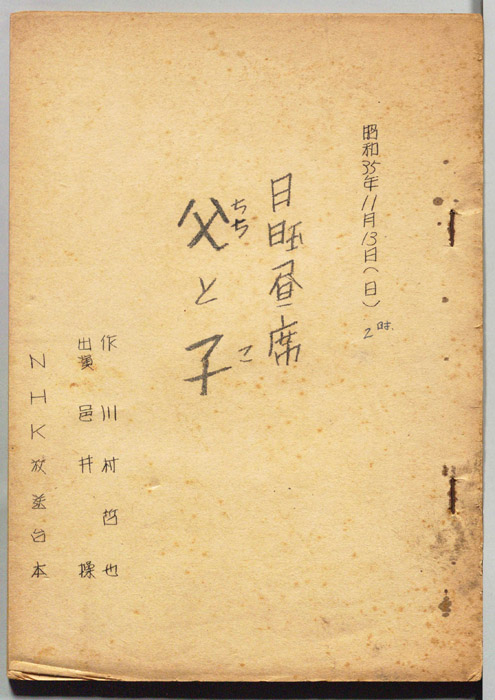 昭和35年11月13日(日)
2時
日曜昼席
父と子
ちち
こ
作 川村哲也
出演 邑井操
NHK放送台本